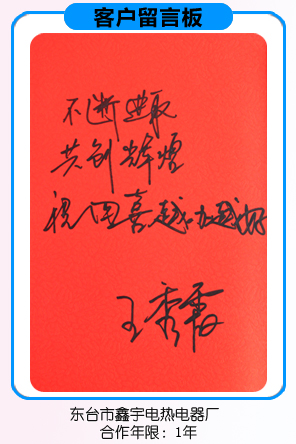 客户留言板
不断进取
共创辉煌
祝田喜越办越好
王秀霞
东台市鑫宇电热电器厂
合作年限：1年